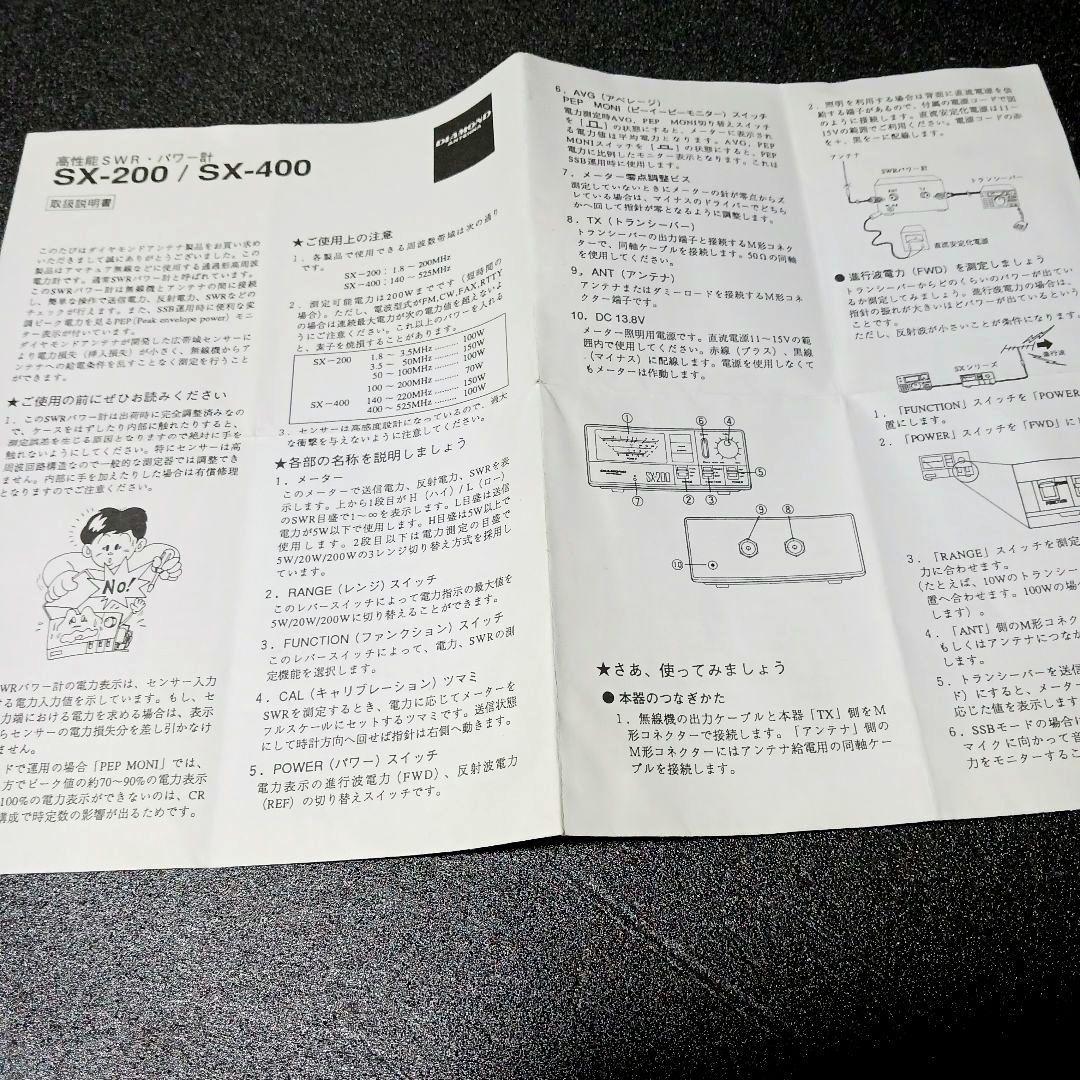 高性能SWR・パワー計
SX-200 / SX-400
取扱説明書
DIAMOND
ANTENNA
このたびはダイヤモンドアンテナ製品をお買い求め
いただきまして誠にありがとうございました。この
製品はアマチュア無線などに使用する通過形高周波
電力計です。通常SWRパワー計と呼ばれています。
このSWRパワー計は無線機とアンテナの間に接続
し、簡単な操作で送信電力、反射電力、SWRなどの
チェックが行えます。また、SSB運用時に便利な変
調ピーク電力を見るPEP(Peak envelope power) モニ
ター表示が付いています。
ダイヤモンドアンテナが開発した広帯域センサーに
より電力損失（挿入損失）が小さく、無線機からア
ンテナへの給電条件を出すことなく測定を行うこと
ができます。
★ご使用の前にぜひお読みください
1．このSWRパワー計は出荷時に完全調整済みなの
で、ケースをはずしたり内部に触れたりすると、
測定誤差を生じる原因となりますので絶対に手を
触れないようにしてください。特にセンサーは高
周波回路構造なので一般的な測定器では調整でき
ません。内部に手を加えたりした場合は有償修理
となりますのでご注意ください。
No!
WRパワー計の電力表示は、センサー入力
る電力入力値を示しています。もし、セ
力端における電力を求める場合は、表示
らセンサーの電力損失分を差し引かなけ
ません。
ドで運用の場合「PEP MONI」では、
方でピーク値の約70～90%の電力表示
100%の電力表示ができないのは、CR
構成で時定数の影響が出るためです。
★ご使用上の注意
1．各製品で使用できる周波数帯域は次の通り
です。
SX-200：1.8 ～ 200MHz
SX-400：140 ～ 525MHz
2．測定可能電力は200Wまでです（短時間の
場合）。ただし、電波型式がFM,CW,FAX,RTTY
の場合は連続最大電力が次の電力値を越えないよ
うにご注意ください。これ以上のパワーを入れる
と、素子を焼損することがあります。
SX－200 1.8 ～ 3.5MHz ......... 100W
3.5 ～ 50MHz ......... 150W
50 ～ 100MHz ......... 100W
100 ～ 200MHz ......... 70W
SX－400 140 ～ 220MHz ......... 150W
400 ～ 525MHz ......... 100W
3．センサーは高感度設計になっているので、過大
な衝撃を与えないように注意してください。
★各部の名称を説明しましょう
1．メーター
このメーターで送信電力、反射電力、SWRを表
示します。上から1段目がH（ハイ）/ L（ロー）
のSWR目盛で1～∞を表示します。L目盛は送信
電力が5W以下で使用します。H目盛は5W以上で
使用します。2段目以下は電力測定の目盛で
5W/20W/200Wの3レンジ切り替え方式を採用し
ています。
2．RANGE（レンジ）スイッチ
このレバースイッチによって電力指示の最大値を
5W/20W/200Wに切り替えることができます。
3．FUNCTION（ファンクション）スイッチ
このレバースイッチによって、電力、SWRの測
定機能を選択します。
4．CAL（キャリブレーション）ツマミ
SWRを測定するとき、電力に応じてメーターを
フルスケールにセットするツマミです。送信状態
にして時計方向へ回せば指針は右側へ動きます。
5．POWER（パワー）スイッチ
電力表示の進行波電力（FWD）、反射波電力
（REF）の切り替えスイッチです。
6．AVG（アベレージ）
PEP MONI（ピーイーピーモニター）スイッチ
電力測定時AVG、PEP MONI切り替えスイッチ
を［ ］の状態にすると、メーターに表示され
る電力値は平均電力となります。AVG、PEP
MONIスイッチを［ ］の状態にすると、PEP
電力に比例したモニター表示となります。これは
SSB運用時に使用します。
7．メーター零点調整ビス
測定していないときにメーターの針が零点からズ
レている場合は、マイナスのドライバーでどちら
かへ回して指針が零となるように調整します。
8．TX（トランシーバー）
トランシーバーの出力端子と接続するM形コネク
ターで、同軸ケーブルを接続します。50Ωの同軸
を使用してください。
9．ANT（アンテナ）
アンテナまたはダミーロードを接続するM形コネ
クター端子です。
10．DC 13.8V
メーター照明用電源です。直流電源11～15Vの範
囲内で使用してください。赤線（プラス）、黒線
（マイナス）に配線します。電源を使用しなくて
もメーターは作動します。
① ⑥ ④
SX-200
⑦ ② ③ ⑤
⑨ ⑧
⑩
★さあ、使ってみましょう
● 本器のつなぎかた
1．無線機の出力ケーブルと本器「TX」側をM
形コネクターで接続します。「アンテナ」側の
M形コネクターにはアンテナ給電用の同軸ケー
ブルを接続します。
2．照明を利用する場合は背面に直流電源を供
給する端子があるので、付属の電源コードで図
のように接続します。直流安定化電源は11～
15Vの範囲でご利用ください。電源コードの赤
を＋、黒を－に配線します。
アンテナ
SWRパワー計
トランシーバー
直流安定化電源
● 進行波電力（FWD）を測定しましょう
トランシーバーからどのくらいのパワーが出てい
るか測定してみましょう。進行波電力の場合は、
指針の振れが大きいほどパワーが出ているという
ことです。
ただし、反射波が小さいことが条件になります。
進行波
SXシリーズ
1．「FUNCTION」スイッチを「POWER
置にします。
2．「POWER」スイッチを「FWD」に
3．「RANGE」スイッチを測定
力に合わせます。
（たとえば、10Wのトランシー
置へ合わせます。100Wの場
します）。
4．「ANT」側のM形コネク
もしくはアンテナにつなか
します。
5．トランシーバーを送信
ド）にすると、メータ
応じた値を表示します
6．SSBモードの場合は
マイクに向かって音
力をモニターするこ